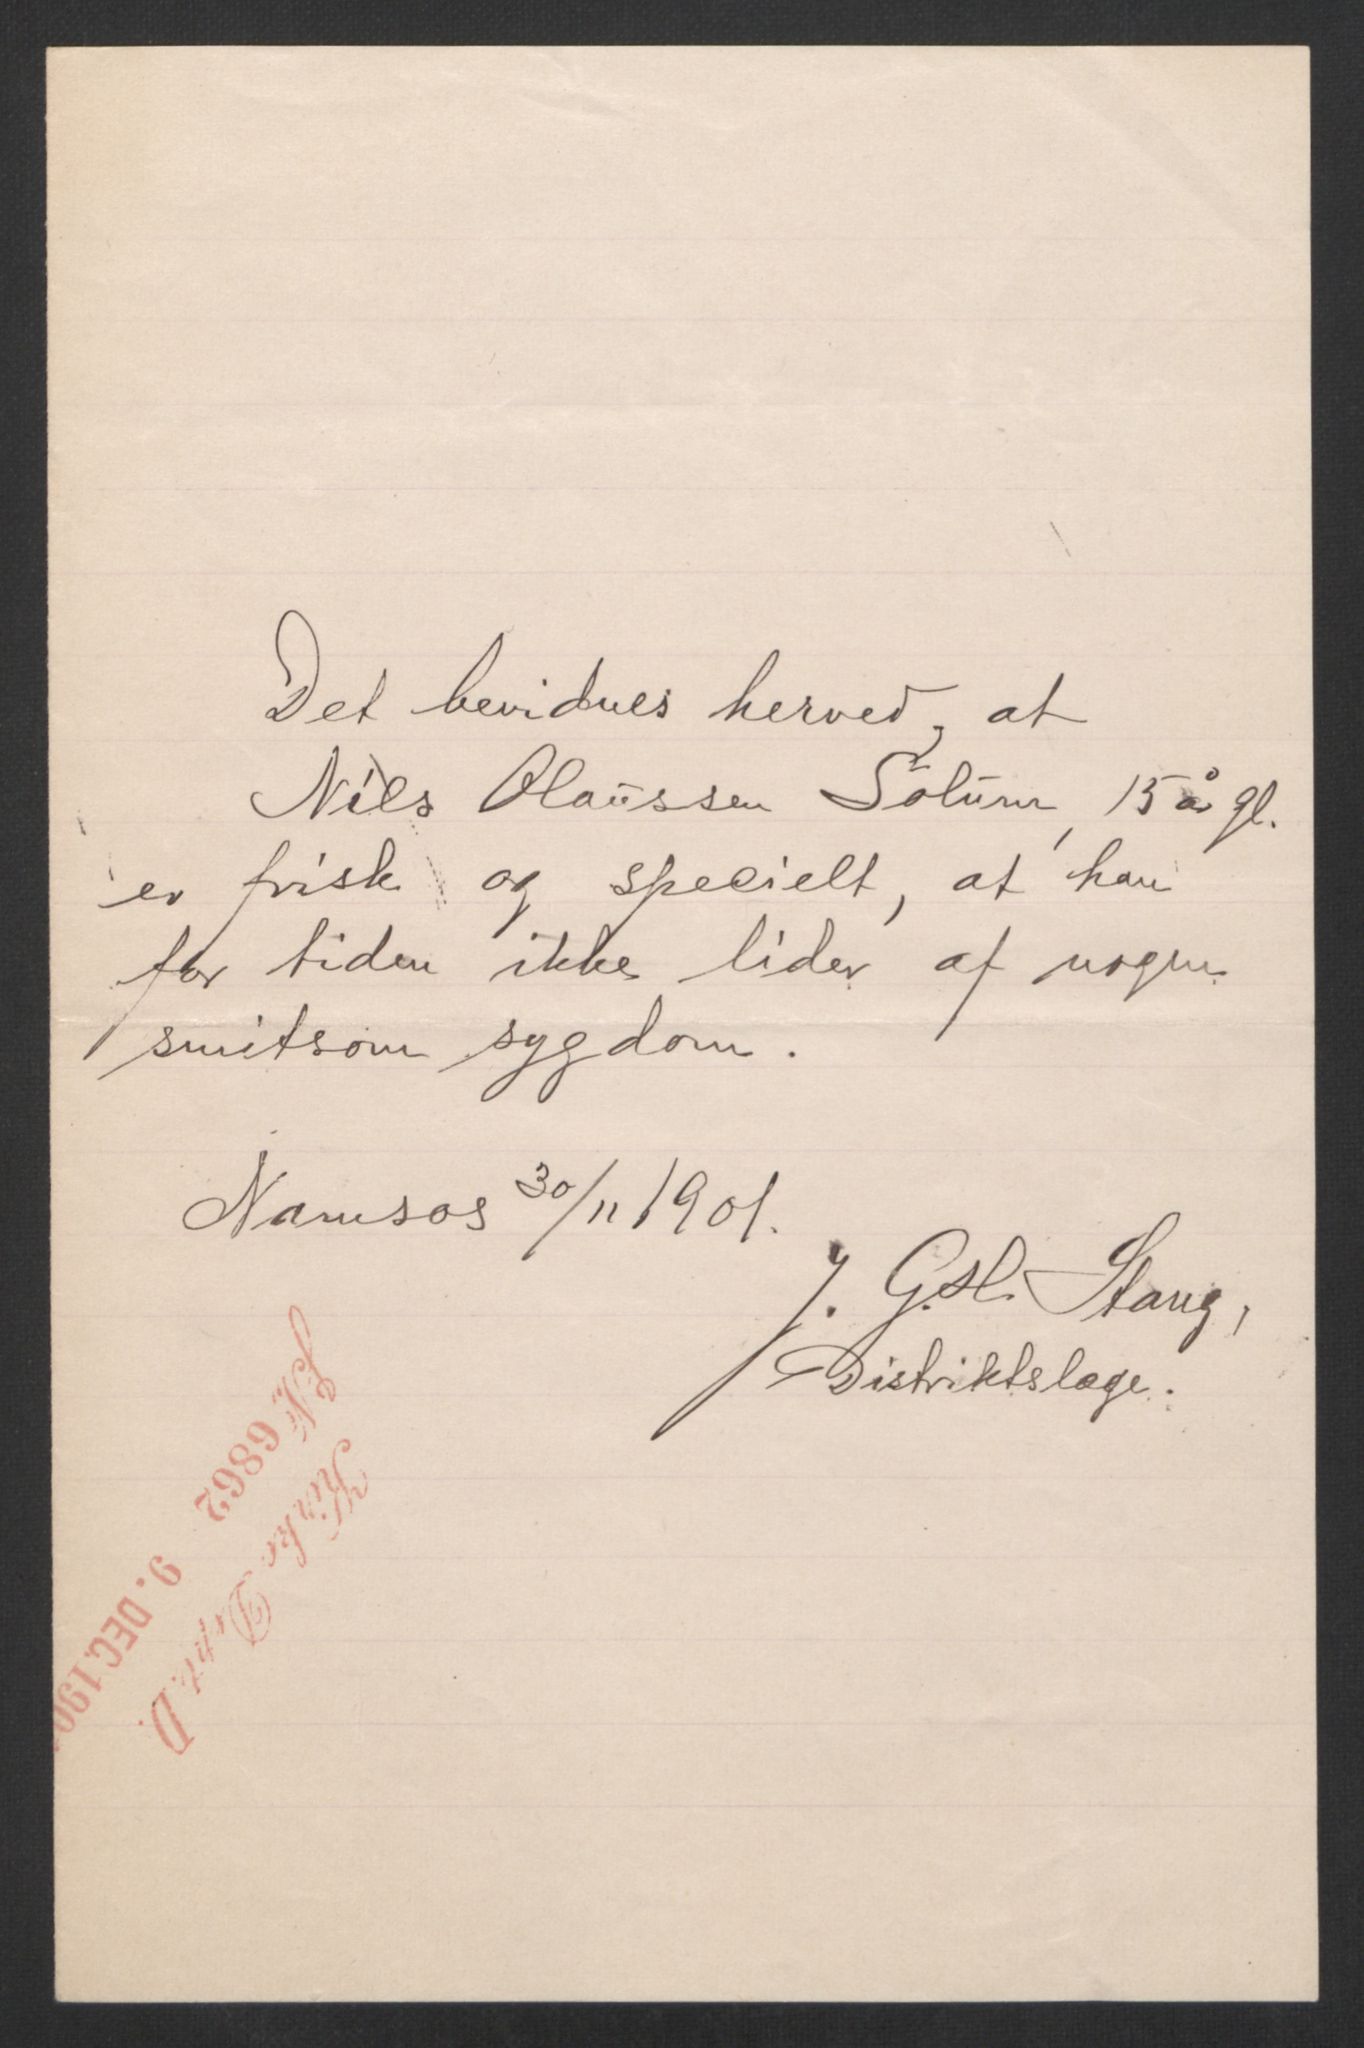 Det bevidnes herved, at
Nils Olaüssen Solüm, 15 år gl.
er frisk og specielt, at han
for tiden ikke lider af nogen
smitsom sygdom.
Namsos 30/11 1901.
J. G. Stang,
Distriktslæge.
J.Nr. 6862
Kirke Dept. D.
9. DEC. 190